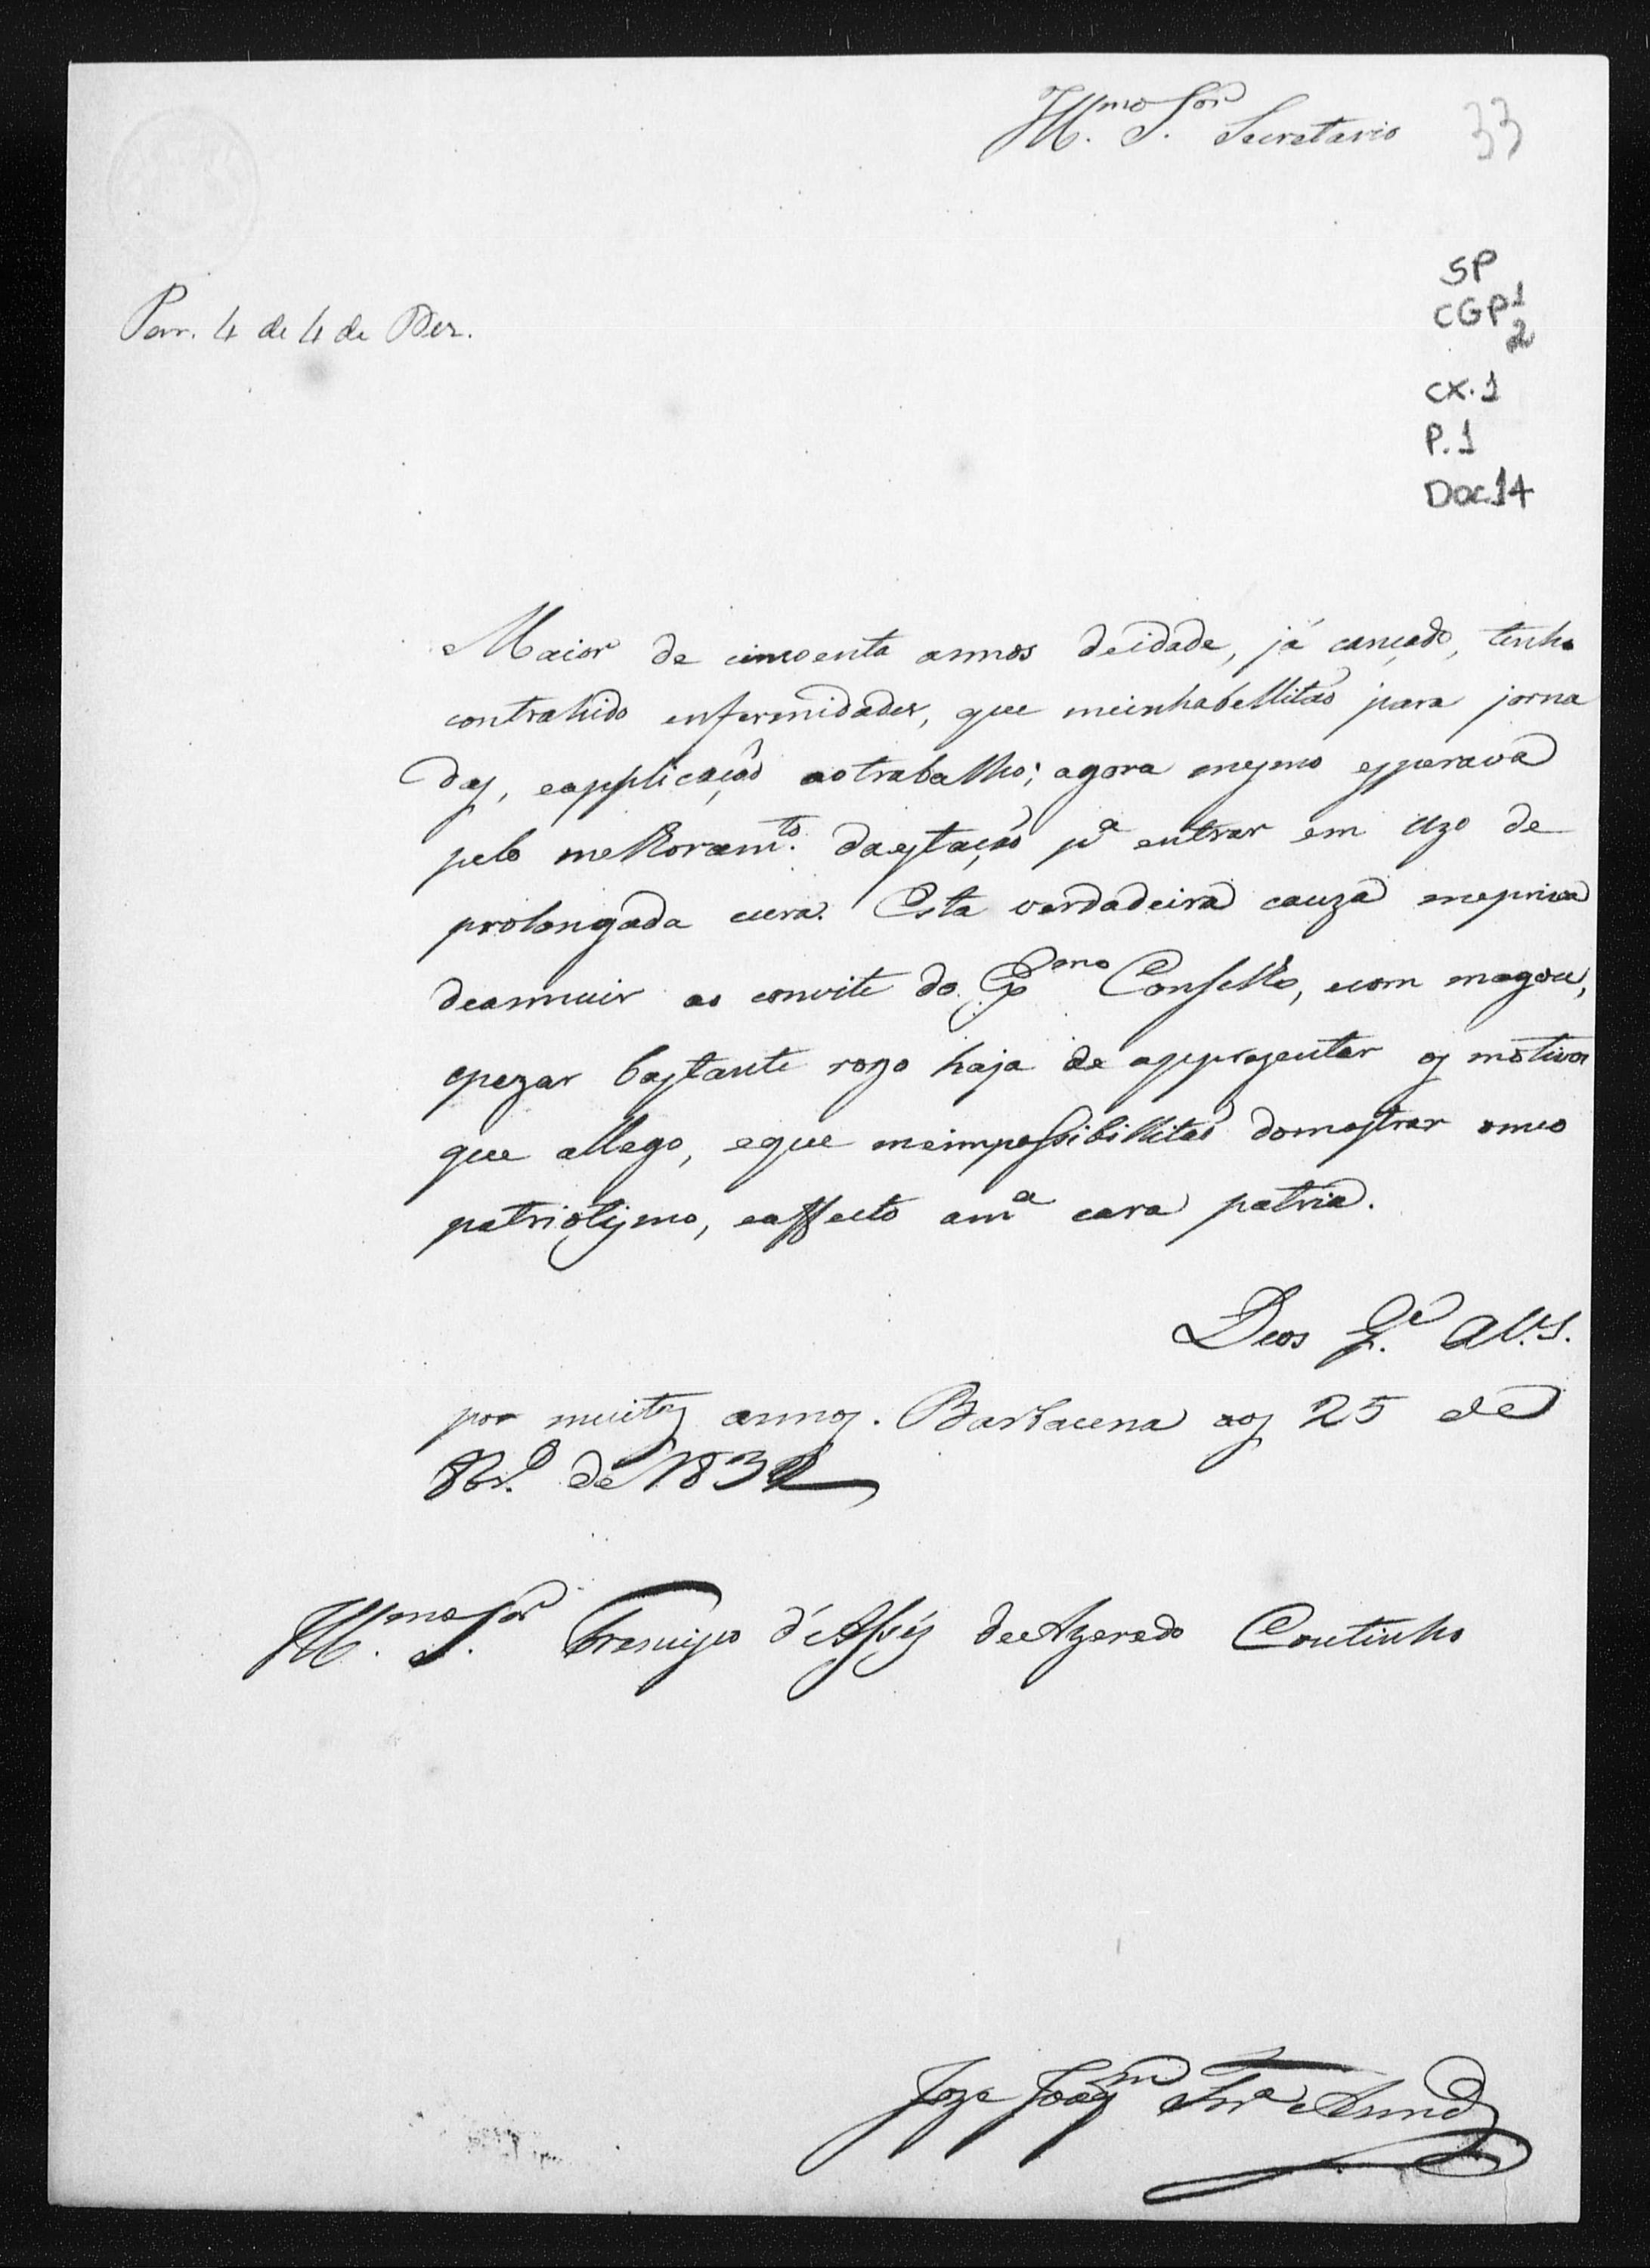 Illmo. Snor. Secretario
33
SP
CGP1
2
CX.1
P.1
Doc.14
Par. 4 de 4 de Dez.
Maior de cincoenta annos deidade, já cançado, tenho
contrahido enfermidades, que meinhabellitaõ para jorna
das, eapplicaçaõ aotrabalho; agora mesmo esperava
pelo melhoramto. daestaçaõ pa entrar em uzo de
prolongada cura. Esta verdadeira cauza mepriva
deannuir ao convite do Exmo Conselho, ecom magoa,
epezar bastante rogo haja de apprezentar os motivos
que allego, eque meimpossibillitaõ domostrar omeo
patriotismo, eaffecto ama cara patria.
Deos Ge. aV.S.
por muitos annos. Barbacena aos 25 de
8br.o de 1832
Illmo. Snor. Francisco d'Assis deAzeredo Coutinho
Joze Joaqm